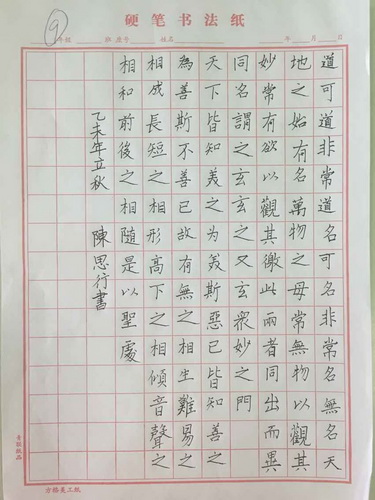 硬笔书法纸
9
年级 班 座号 姓名 年 月 日
道可道非常道名可名非常名無名天
地之始有名萬物之母常無物以觀其
妙常有欲以觀其徼此兩者同出而異
同名謂之玄玄之又玄衆妙之門
天下皆知美之为美斯惡已皆知善之
為善斯不善已故有無之相生難易之
相成長短之相形高下之相傾音聲之
相和前後之相隨是以聖處
乙未年立秋 陳思行書
方格美工纸